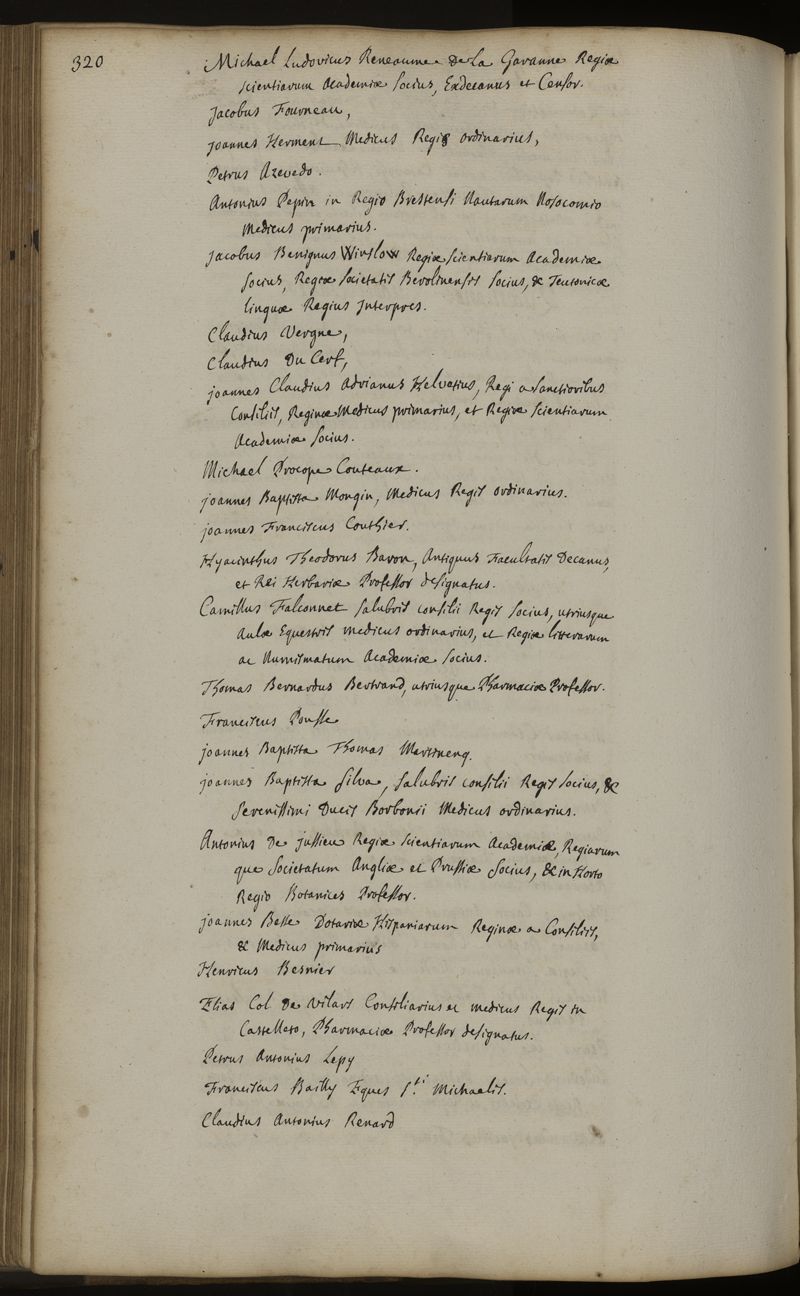 320
Michael Ludovicus Reneaume De La Garanne Regiæ
scientiarum Academiæ Socius, Exdecanus et Censor.
Jacobus Fourneau,
joannes Herment Medicus Regis ordinarius,
Petrus Azevedo.
Antonius Pepin in Regio Brestensi Nautarum Nosocomio
Medicus primarius.
Jacobus Benignus Winslow Regiæ scientiarum Academiæ
Socius, Regiæ Societatis Berolinensis Socius, & Teutonicæ
linguæ Regius Interpres.
Claudius Vergne,
Claudius Du Cerf,
joannes Claudius Adrianus Helvetius, Regi a Sanctioribus
Consiliis, Reginæ Medicus primarius, et Regiæ scientiarum
Academiæ Socius.
Michael Procope Couteaux.
joannes Baptista Mongin, Medicus Regis ordinarius.
joannes Franciscus Couthier.
Hyacinthus Theodorus Baron, Antiquus Facultatis Decanus,
et Rei Herbariæ Professor designatus.
Camillus Falconnet salubris consilii Regis Socius, utriusque
Aulæ Equestris medicus ordinarius, et Regiæ litterarum
ac Numismatum Academiæ Socius.
Thomas Bernardus Bertrand, utriusque Pharmaciæ Professor.
Franciscus Pousse
joannes Baptista Thomas Martinenq.
joannes Baptista Silva, salubris consilii Regis Socius, &
Serenissimi Ducis Borbonii Medicus ordinarius.
Antonius De jussieu Regiæ scientiarum Academiæ, Regiarum
que Societatum Angliæ et Prussiæ Socius, & in Horto
Regio Botanices Professor.
joannes Besse Dotariæ Hispaniarum Reginæ a Consiliis,
& Medicus primarius
Henricus Besnier
Elias Col De Vilars Consiliarius et medicus Regis in
Castelleto, Pharmaciæ Professor designatus.
Petrus Antonius Lepy
Franciscus Bailly Eques S.ti Michaelis.
Claudius Antonius Renard